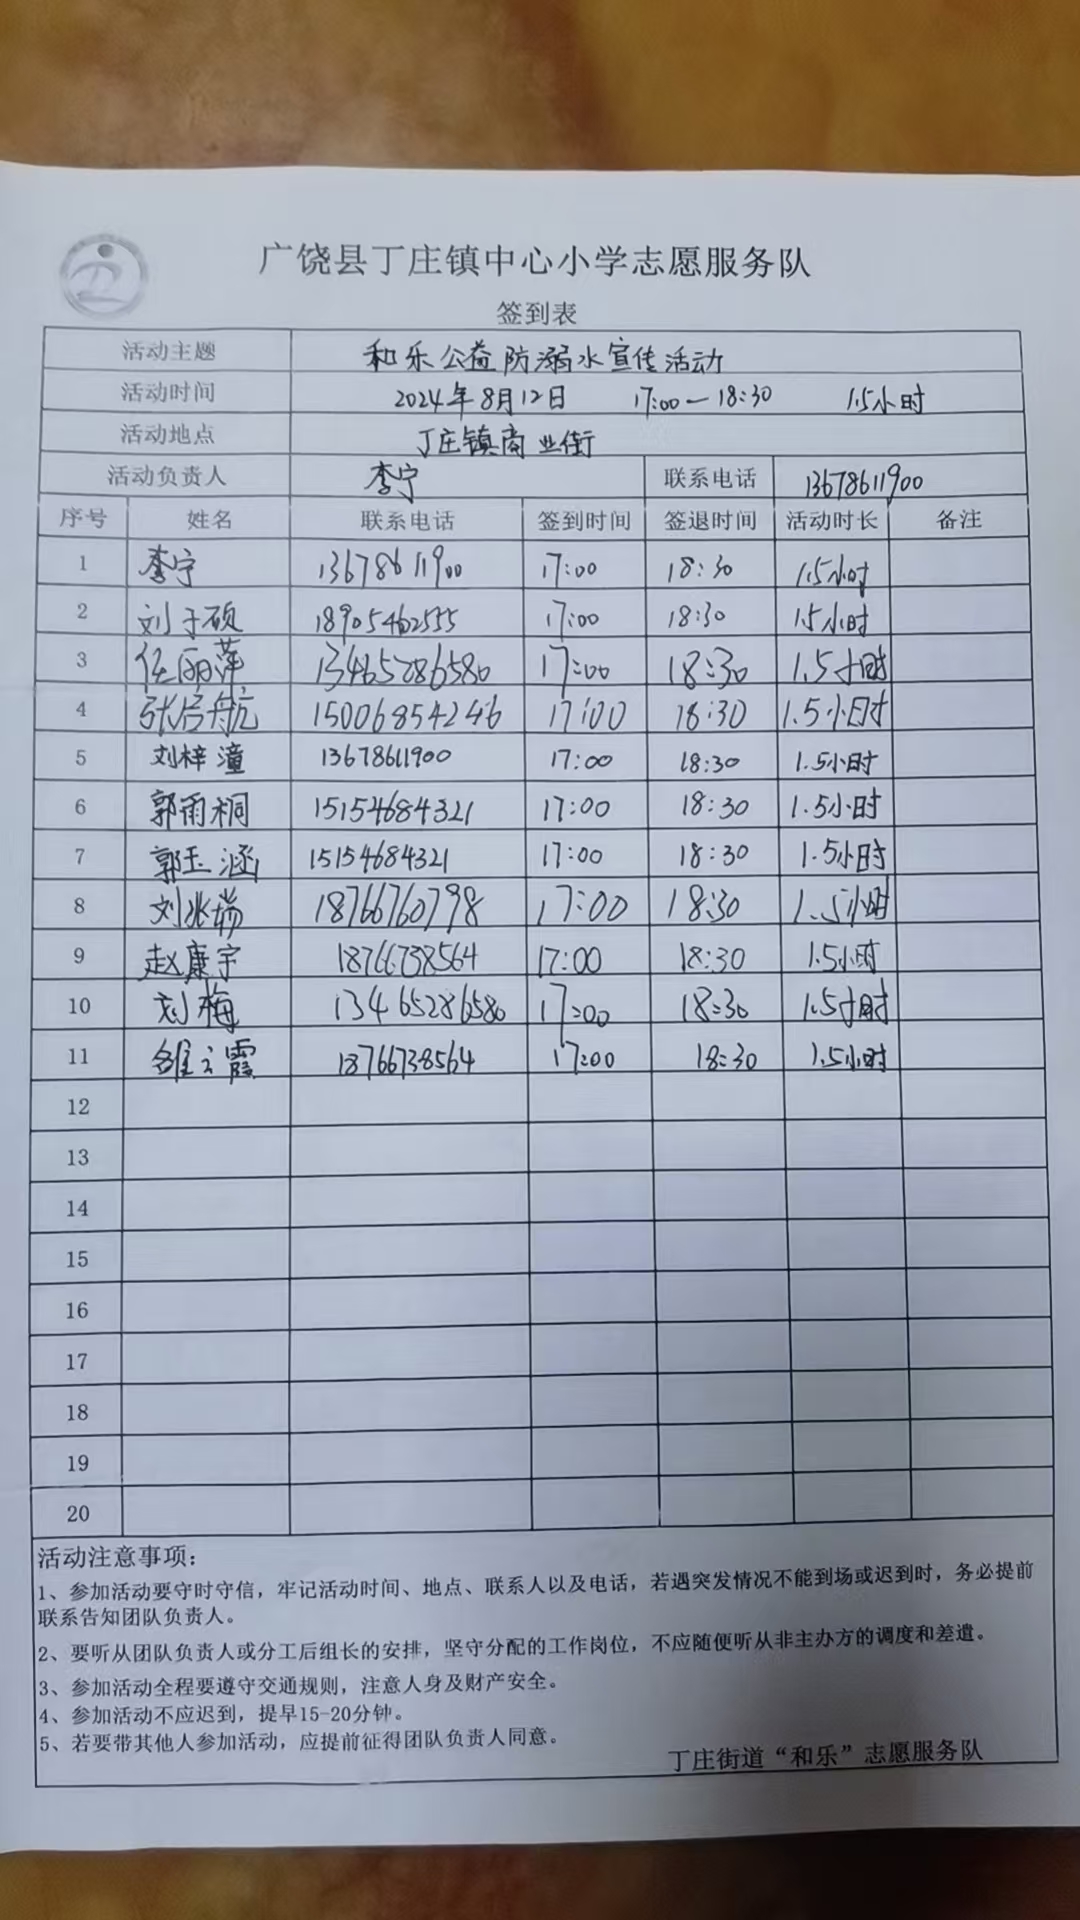 广饶县丁庄镇中心小学志愿服务队
签到表
活动主题 和乐公益防溺水宣传活动
活动时间 2024年8月12日 17:00—18:30 1.5小时
活动地点 丁庄镇商业街
活动负责人 李宁 联系电话 13678611900
序号 姓名 联系电话 签到时间 签退时间 活动时长 备注
1 李宁 13678611900 17:00 18:30 1.5小时
2 刘子硕 18905462555 17:00 18:30 1.5小时
3 任丽萍 13465286580 17:00 18:30 1.5小时
4 张启航 15006854246 17:00 18:30 1.5小时
5 刘梓潼 13678611900 17:00 18:30 1.5小时
6 郭雨桐 15154684321 17:00 18:30 1.5小时
7 郭玉涵 15154684321 17:00 18:30 1.5小时
8 刘兆 18766760798 17:00 18:30 1.5小时
9 赵康宇 18766738564 17:00 18:30 1.5小时
10 刘梅 13465286580 17:00 18:30 1.5小时
11 雒云霞 18766738564 17:00 18:30 1.5小时
12
13
14
15
16
17
18
19
20
活动注意事项：
1、参加活动要守时守信，牢记活动时间、地点、联系人以及电话，若遇突发情况不能到场或迟到时，务必提前
联系告知团队负责人。
2、要听从团队负责人或分工后组长的安排，坚守分配的工作岗位，不应随便听从非主办方的调度和差遣。
3、参加活动全程要遵守交通规则，注意人身及财产安全。
4、参加活动不应迟到，提早15-20分钟。
5、若要带其他人参加活动，应提前征得团队负责人同意。
丁庄街道“和乐”志愿服务队